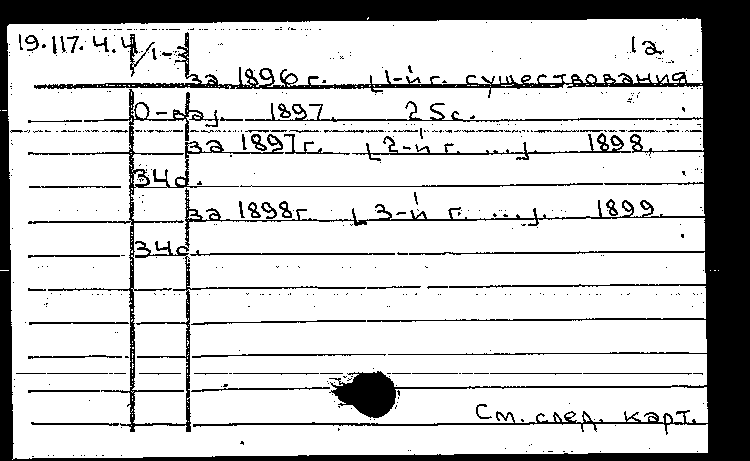 19.117.4.4/1-3 1а
за 1896 г. [1-й г. существования
О-ва]. 1897. 25с.
за 1897г. [2-й г. ...]. 1898.
34с.
за 1898г. [3-й г. ...]. 1899.
34с.
См. след. карт.